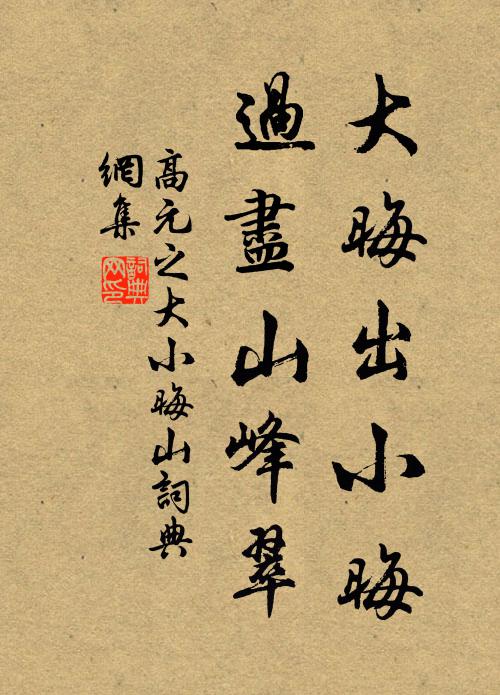 大晦出小晦
過盡山峰翠
高元之大小晦山詞典
網集
詞典
網印